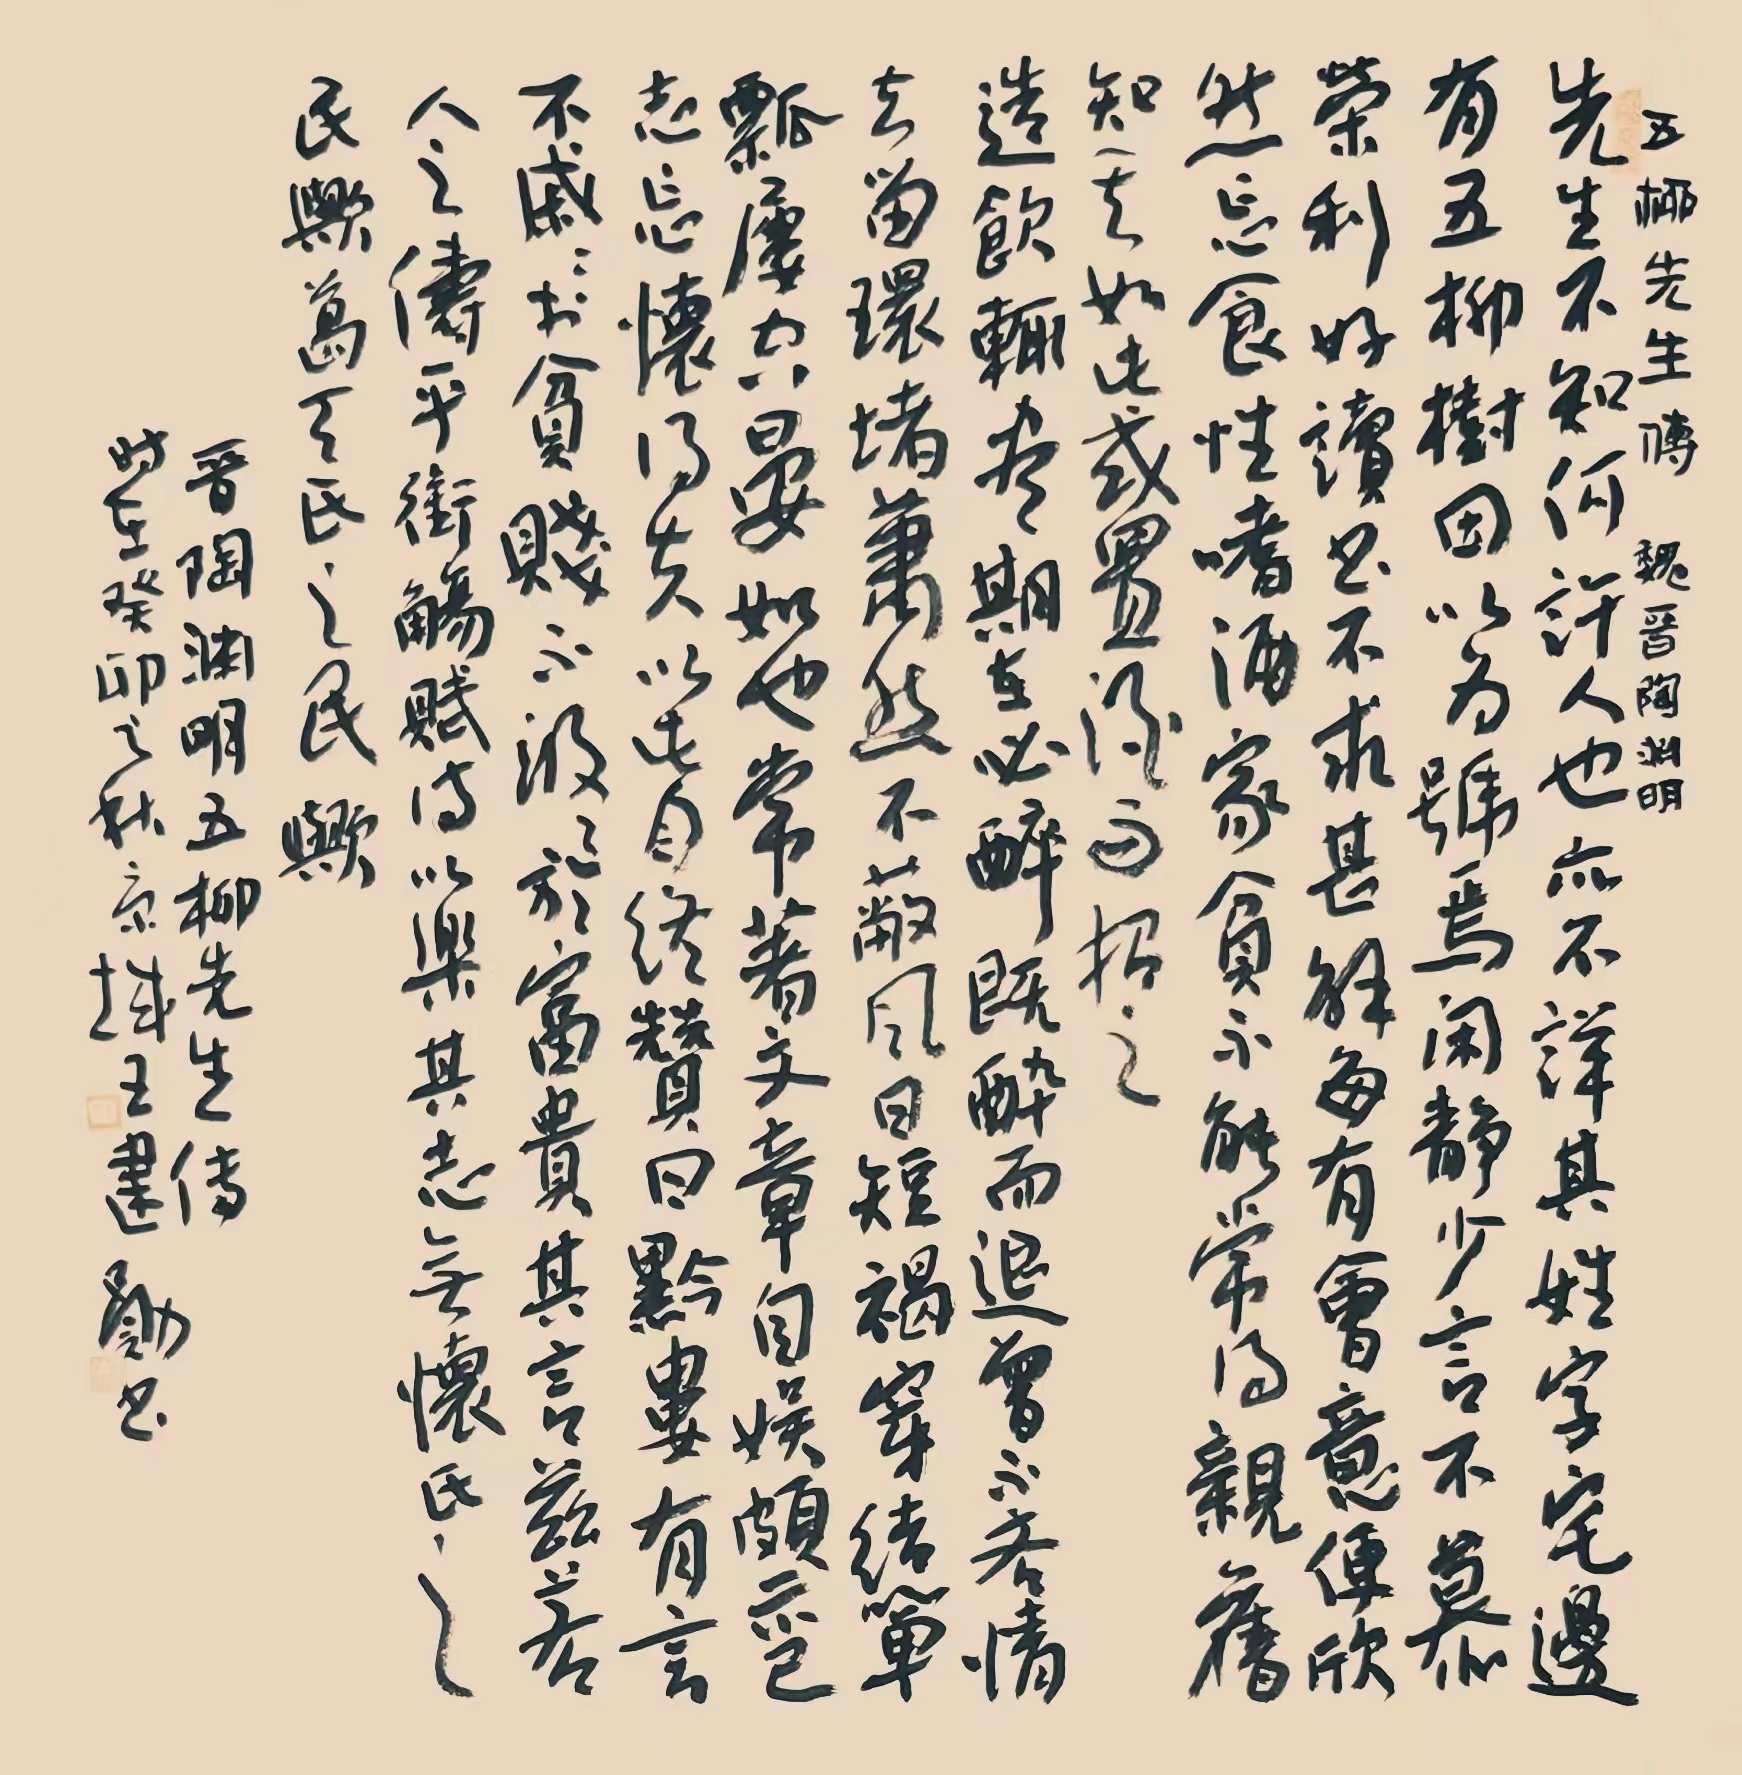 五柳先生傳 魏晉陶淵明
先生不知何許人也亦不詳其姓字宅邊
有五柳樹因以为號焉闲静少言不慕
榮利好讀书不求甚解每有會意便欣
然忘食性嗜酒家貧不能常得親舊
知其如此或置酒而招之
造飲輒尽期在必醉既醉而退曾不吝情
去留環堵蕭然不蔽风日短褐穿结簞
瓢屢空晏如也常著文章自娱頗示己
志忘懷得失以此自终贊曰黔婁有言
不戚々於貧賤不汲々於富貴其言茲若
人之儔乎銜觴赋诗以樂其志无懷氏之
民歟葛天氏之民歟
晉陶渊明五柳先生传
时在癸卯之秋京城王建勛书